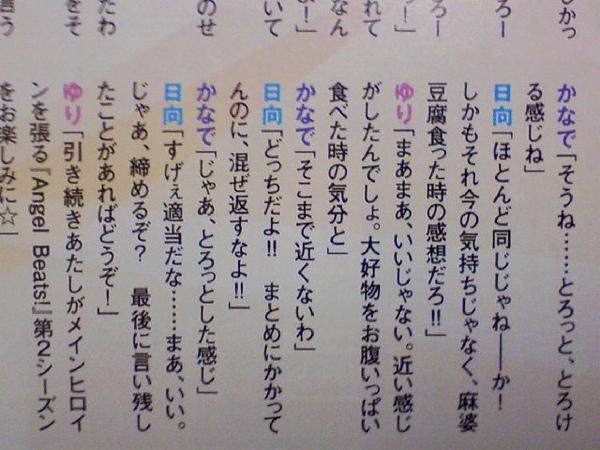 しかっ
ろー
ろー
っ！」
れて
なん
よ！」
いて
のせ
たわ
をそ
言う
かなで「そうね……とろっと、とろけ
る感じね」
日向「ほとんど同じじゃね――か！
しかもそれ今の気持ちじゃなく、麻婆
豆腐食った時の感想だろ!!」
ゆり「まあまあ、いいじゃない。近い感じ
がしたんでしょ。大好物をお腹いっぱい
食べた時の気分と」
かなで「そこまで近くないわ」
日向「どっちだよ!!　まとめにかかって
んのに、混ぜ返すなよ!!」
かなで「じゃあ、とろっとした感じ」
日向「すげぇ適当だな……まあ、いい。
じゃあ、締めるぞ？　最後に言い残し
たことがあればどうぞ！」
ゆり「引き続きあたしがメインヒロイ
ンを張る『Angel Beats!』第2シーズン
をお楽しみに☆」